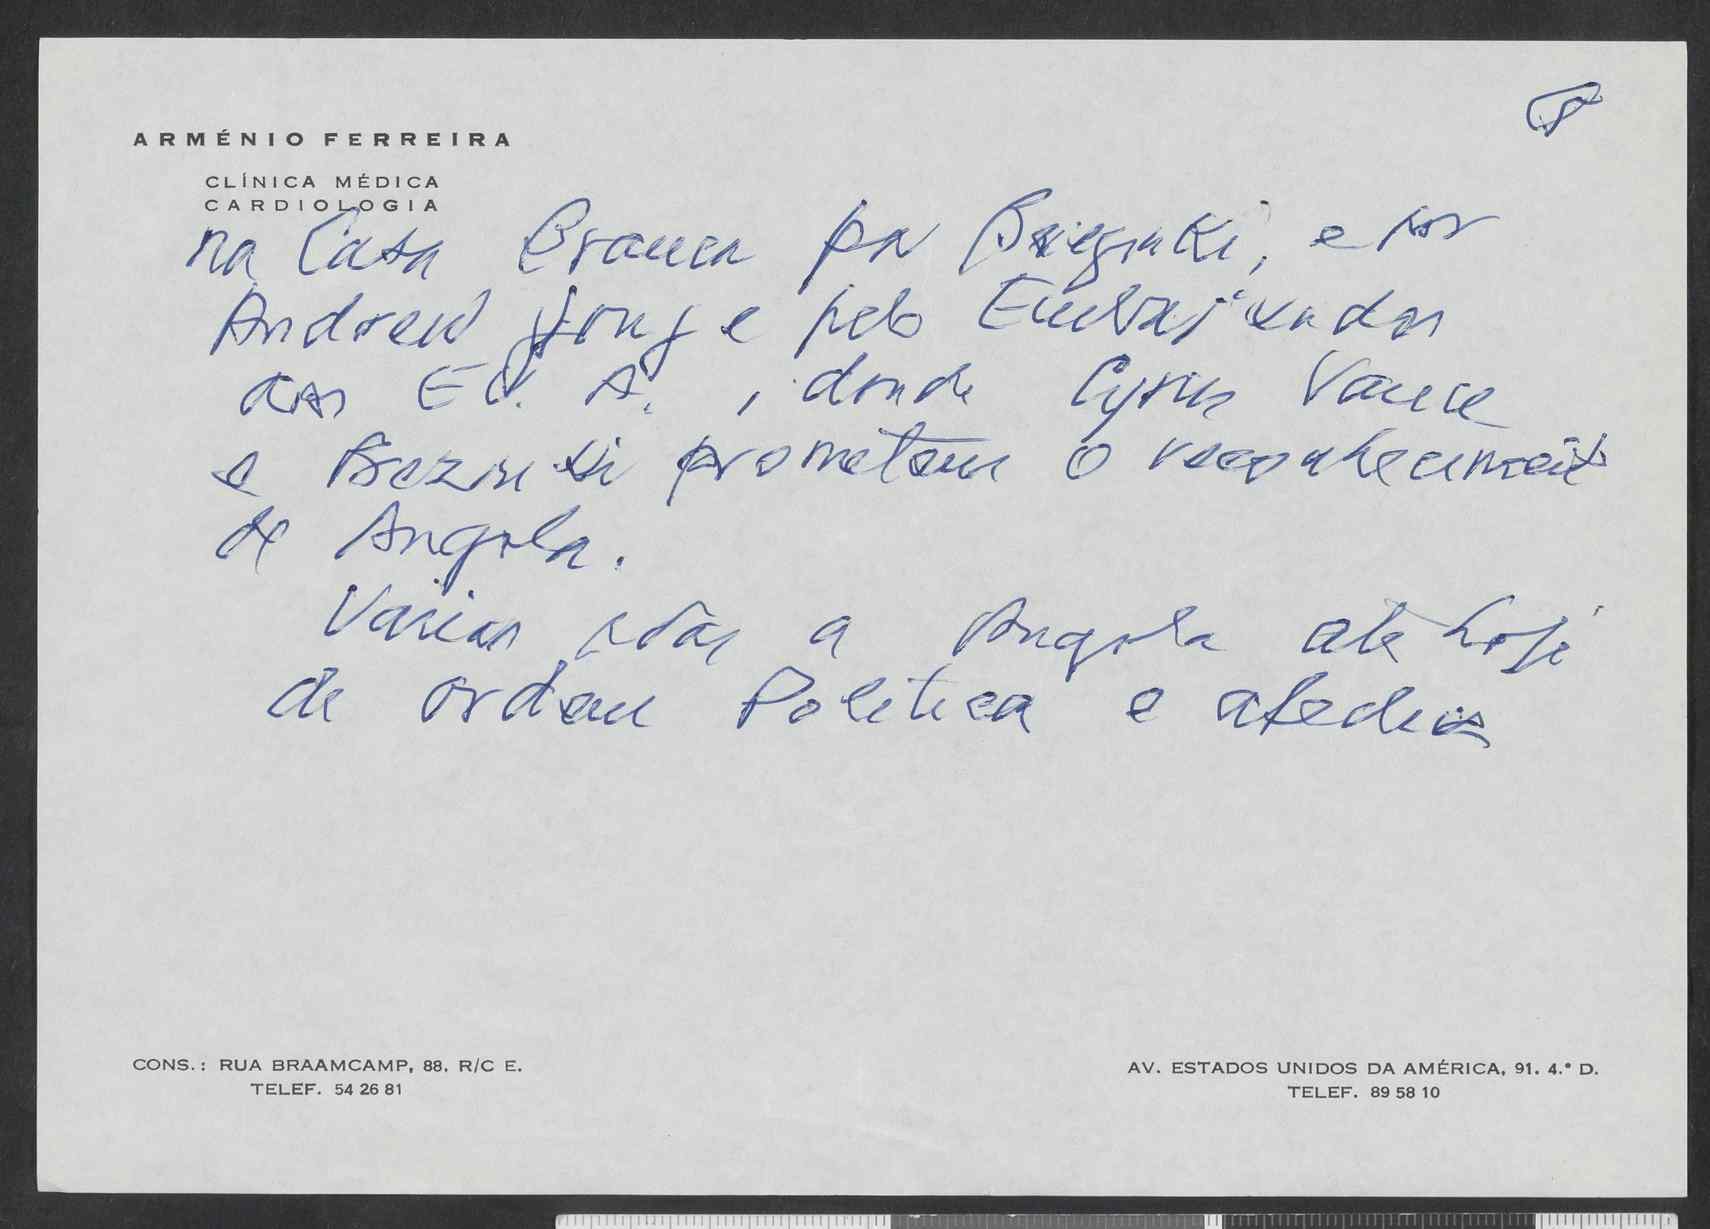 ARMÉNIO FERREIRA
CLÍNICA MÉDICA
CARDIOLOGIA
na Casa Branca por e por
Andrew Yong e pelo Embaixador
dos EU. A., donde Cyrus Vance
e prometem o reconhecimento
de Angola.
Varias idas a Angola até hoje
de ordem Politica e
CONS.: RUA BRAAMCAMP, 88. R/C E.
TELEF. 54 26 81
AV. ESTADOS UNIDOS DA AMÉRICA, 91. 4.° D.
TELEF. 89 58 10